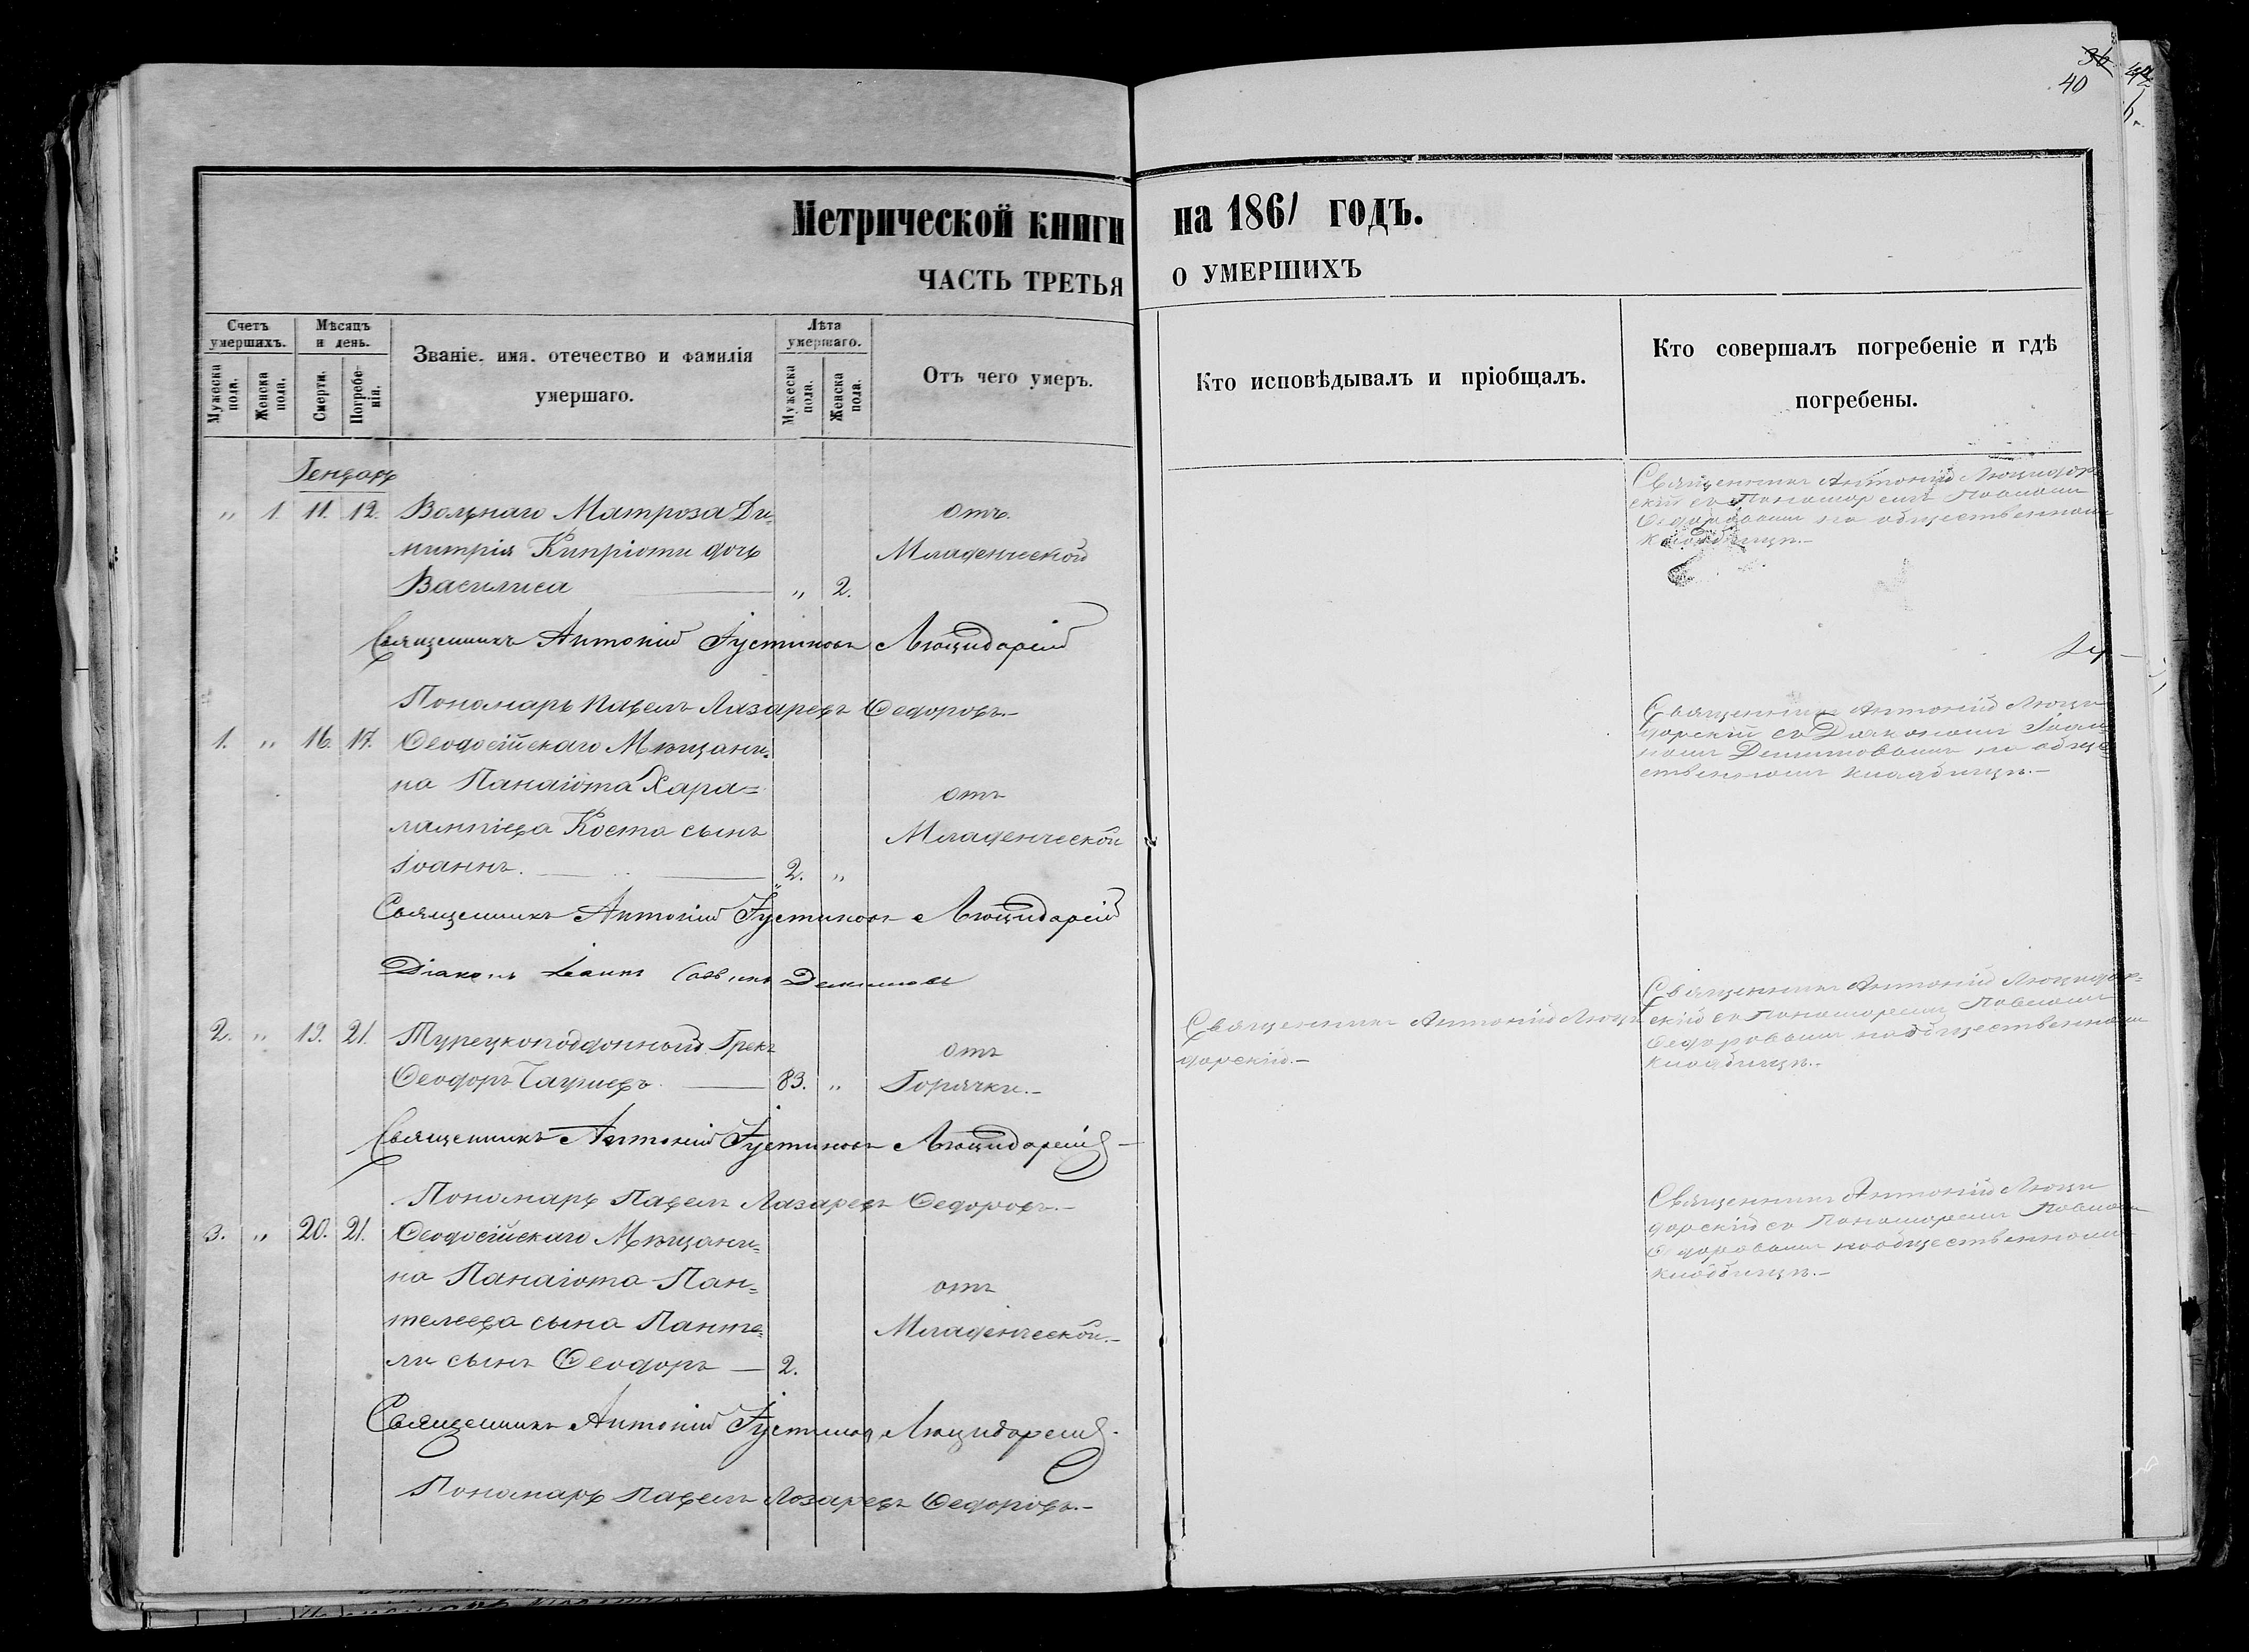 36
40
Метрической книги на 1861 годъ.
ЧАСТЬ ТРЕТЬЯ О УМЕРШИХЪ
Счетъ умершихъ.
Мужеска пола.
Женска пола.
Мѣсяцъ и день.
Смерти.
Погребенія.
Званіе. имя. отечество и фамилія
умершаго.
Лѣта умершаго.
Мужеска пола.
Женска пола.
Отъ чего умеръ.
Кто исповѣдывалъ и пріобщалъ.
Кто совершалъ погребеніе и гдѣ
погребены.
Генварь
„ 1. 11. 12. Вольнаго Матроза Ди- отъ
митрія Кипріоти дочь Младенческой
Василиса — „ 2.
Священникъ Антоній Люцидар-
скій съ Пономаремъ Павломъ
Федоровымъ на общественномъ
кладбищѣ.-
Священникъ Антоній Іустиновъ Люцидарскій
Пономарь Павелъ Лазаревъ Федоровъ.-
1. „ 16. 17. Феодосійскаго Мѣщани-
на Панагіота Хара= отъ
лампіева Коста сынъ Младенческой
Іоаннъ. — 2. „
Священникъ Антоній Люци-
дарскій съ Діакономъ Іоан-
номъ Демитовымъ на обще-
ственномъ кладбищѣ.-
Священникъ Антоній Іустиновъ Люцидарскій
Діаконъ Іоаннъ
2. „ 19. 21. Турецкоподданный Грекъ отъ
Феодоръ — 83. „ Горячки.-
Священникъ Антоній Люци-
дарскій.-
Священникъ Антоній Люцидар-
скій съ Пономаремъ Павломъ
Федоровымъ на общественномъ
кладбищѣ.-
Священникъ Антоній Іустиновъ Люцидарскій
Пономарь Павелъ Лазаревъ Федоровъ.-
3. „ 20. 21. Феодосійскаго Мѣщани-
на Панагіота Пан- отъ
телеева сына Панте- Младенческой.-
ли сынъ Феодоръ — 2.
Священникъ Антоній Люци-
дарскій съ Пономаремъ Павломъ
Федоровымъ на общественномъ
кладбищѣ.-
Священникъ Антоній Іустиновъ Люцидарскій.
Пономарь Павелъ Лазаревъ Федоровъ.-